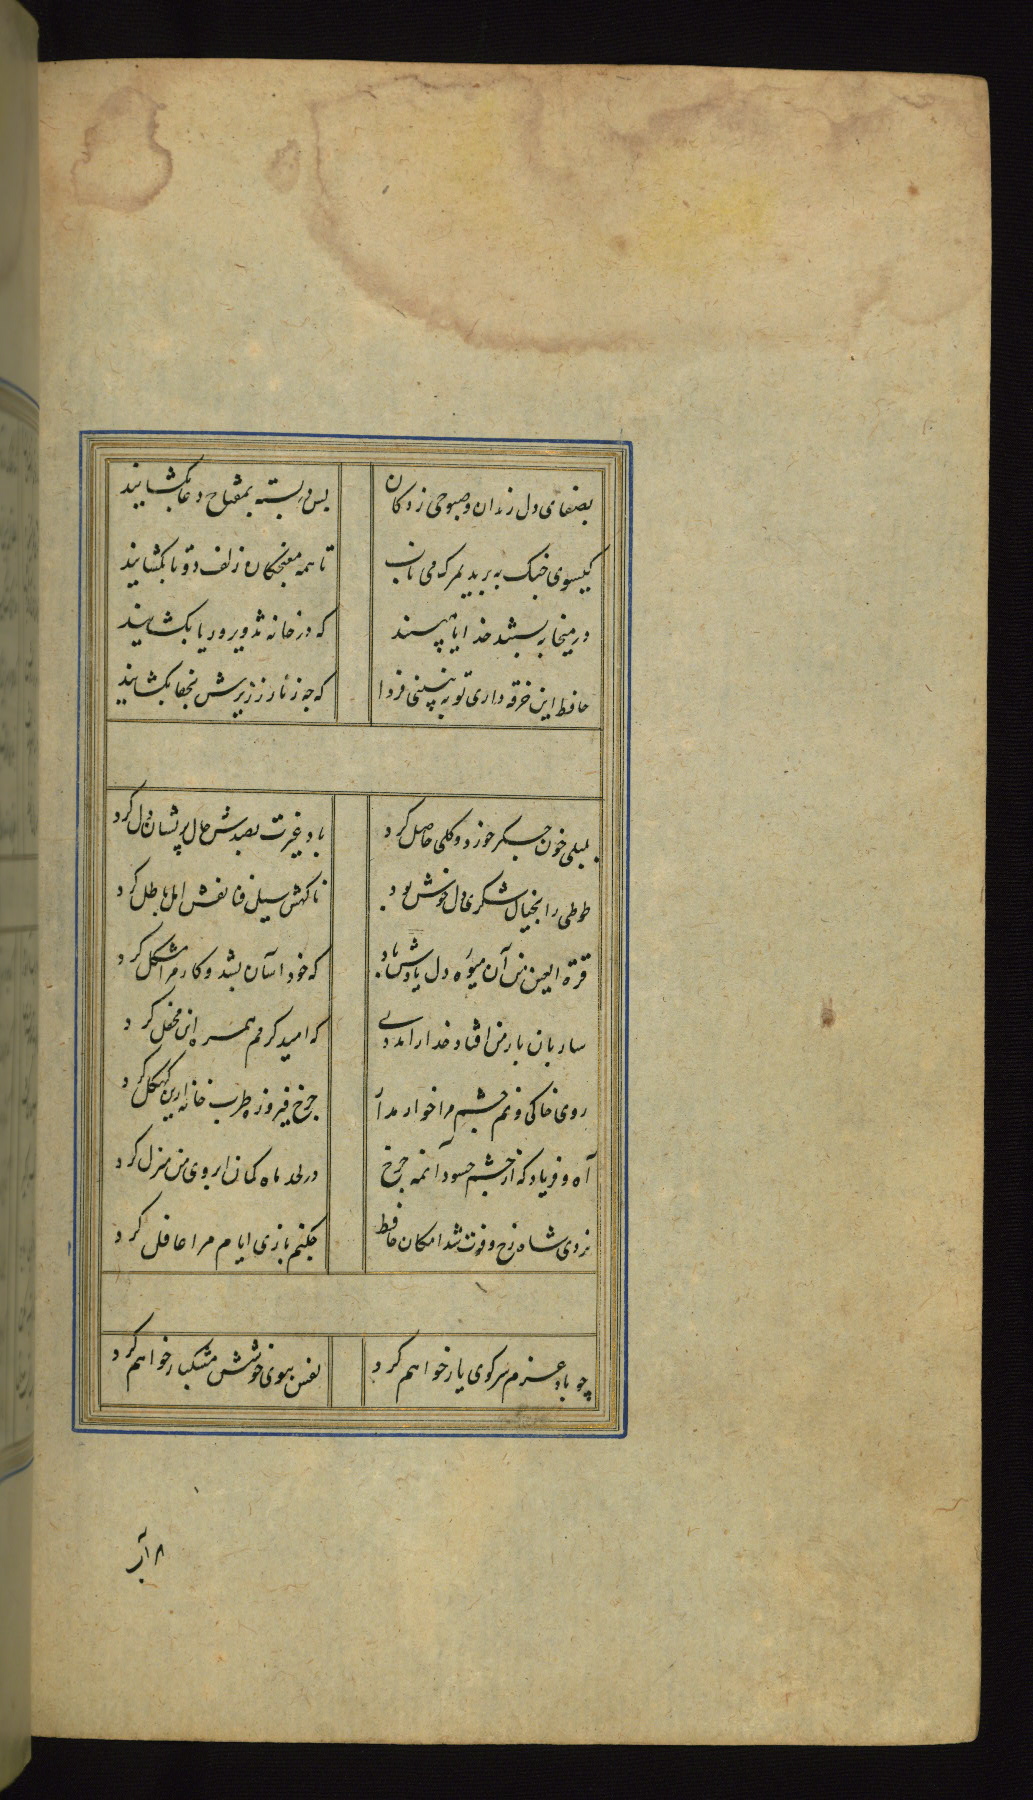 بصفای دل رندان و صبوحی زدکان بس در بسته بمفتاح دعا بکشایند
کیسوی چنک به برید بمرک می ناب تا همه مغبچکان زلف دوتا بکشایند
در میخانه ببستند خدایا مپسند که در خانه تزویر و ریا بکشایند
حافظ این خرقه داری تو به بینی فردا که چه زنار ز زیرش بجفا بکشایند
بلبلی خون جکر خورد و کلی حاصل کرد باد غیرت بصدش حال پریشان دل کرد
طوطی را بخیال شکری دل خوش بود ناکهش سیل فنا نقش امل باطل کرد
قرة العین من آن میوه دل یادش باد که خود آسان بشد و کار مرا مشکل کرد
ساربان بار من افتاد خدا را مددی که امید کرمم همره این محمل کرد
روی خاکی و نم چشم مرا خوار مدار چرخ فیروزه طربخانه ازین کهکل کرد
آه و فریاد که از چشم حسود مه چرخ در لحد ماه کمان ابروی من منزل کرد
نزدی شاه رخ و فوت شد امکان حافظ چکنم بازی ایام مرا غافل کرد
چو باد عزم سر کوی یار خواهم کرد نفس ببوی خوشش مشکبار خواهم کرد